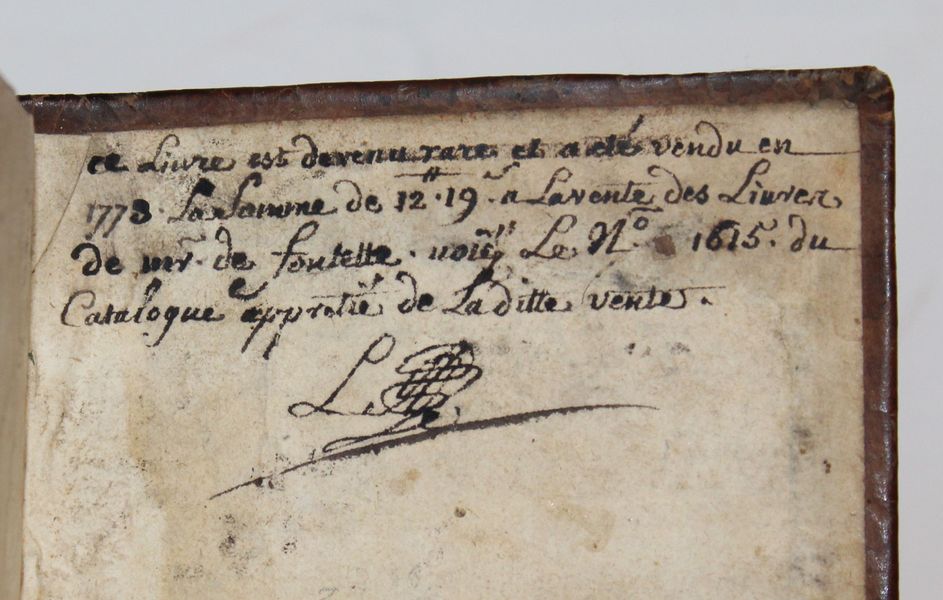 ce Livre est devenu rare et a eté vendu en
1773. La Somme de 12 ₶. 19 ˢ. a La vente des Livres
de mr. de fontette. Le N.º 1615. du
Catalogue appretié de La ditte vente.
L